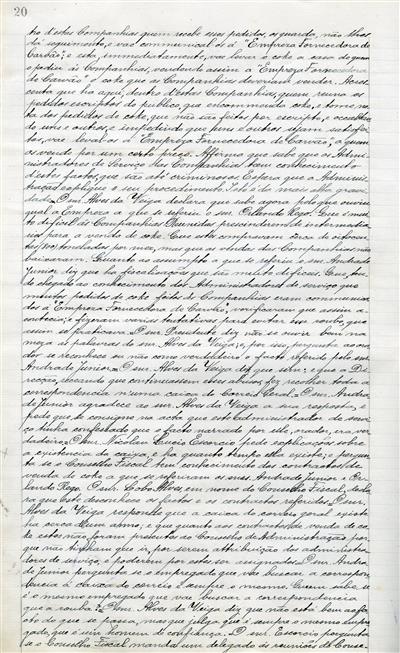 20
tro d'estas Companhias quem recebe esses pedidos, os guarda, não lhes
dá seguimento, e vae communical-os á "Empreza Fornecedora de
Carvão"; e esta, immediatamente, vae levar o coke a casa de quem
o pediu ás Companhias, vendendo assim a "Empreza Fornecedora
de Carvão" o coke que as Companhias deveriam vender. Acres-
centa que ha aqui, dentro d'estas Companhias, quem reuna os
pedidos escriptos do publico, que encommenda coke, e tome no-
ta dos pedidos de coke, que não são feitos por escripto, e occultan-
do uns e outros, e impedindo que uns e outros sejam satisfei-
tos, vae leval-os á "Empreza Fornecedora de Carvão", a quem
os vende por um certo preço. Affirma que sabe que os Admi-
nistradores de Serviço das Companhias teem conhecimento
d'estes factos, que são até criminosos. Espera que a Adminis-
tração explique o seu procedimento. Isto é da mais alta gravi-
dade. O snr. Alves da Veiga declara que sabe agora pelo que ouviu
qual a Empreza a que se referiu o snr. Orlando Rego. Que é mui-
to difficil ás Companhias Reunidas prescindirem de intermedia-
rios para a venda de coke. Que esta compra cerca de oitocen-
tas toneladas por mez, mas que as vendas das Companhias não
baixaram. Quanto ao assumpto a que se referiu o snr. Andrade
Junior, diz que ha fiscalizações que são muito difficeis. Que, ten-
do chegado ao conhecimento dos Administradores de serviço que
muitos pedidos de coke feitos ás Companhias eram communica-
dos á Empreza Fornecedora de Carvão, verificaram que assim a-
contecia, e fizeram varias tentativas para evitar um roubo, que
assim se praticava. O snr. Presidente diz não se ouvir bem na
meza as palavras do snr. Alves da Veiga, e, por isso, pergunta ao ora-
dor se reconhece ou não como verdadeiro o facto referido pelo snr.
Andrade Junior. O snr. Alves da Veiga diz que sim: e que a Di-
recção, receando que continuassem esses abusos, fez recolher toda a
correspondencia n'uma caixa do Correio Geral. O snr. Andra-
de Junior agradece ao snr. Alves da Veiga a sua resposta, e
pede que se consigne na acta que este administrador de servi-
ço tinha confessado que o facto narrado por elle, orador, era ver-
dadeiro. O snr. Nicolau Lucio Escorcio pede explicações sobre
a existencia da caixa, e ha quanto tempo ella existe; e pergun-
ta se o Conselho Fiscal tem conhecimento dos contractos de
venda de coke a que se referiram os snrs. Andrade Junior e Or-
lando Rego. O snr. Alves em nome do Conselho Fiscal, decla-
ra que este desconhece os factos e os contractos referidos. O snr.
Alves da Veiga responde que a caixa do correio geral existe
ha cerca d'um anno; e que quanto aos contractos de venda de co-
ke estes não foram presentes ao Conselho de Administração por-
que não tinham que ir, por serem attribuição dos administra-
dores de serviço, e poderem por estes ser assignados. O snr. An-
drade Junior pergunta se o empregado que vae buscar a correspon-
dencia á caixa do correio é sempre o mesmo. Quem sabe se
é o mesmo empregado que vae buscar a correspondencia
que a rouba? O snr. Alves da Veiga diz que não está bem ao fac-
to do que se passa, mas que julga que é sempre o mesmo empre-
gado, que é um homem de confiança. O snr. Escorcio pergunta
se o Conselho Fiscal manda um delegado ás reuniões do Conse-